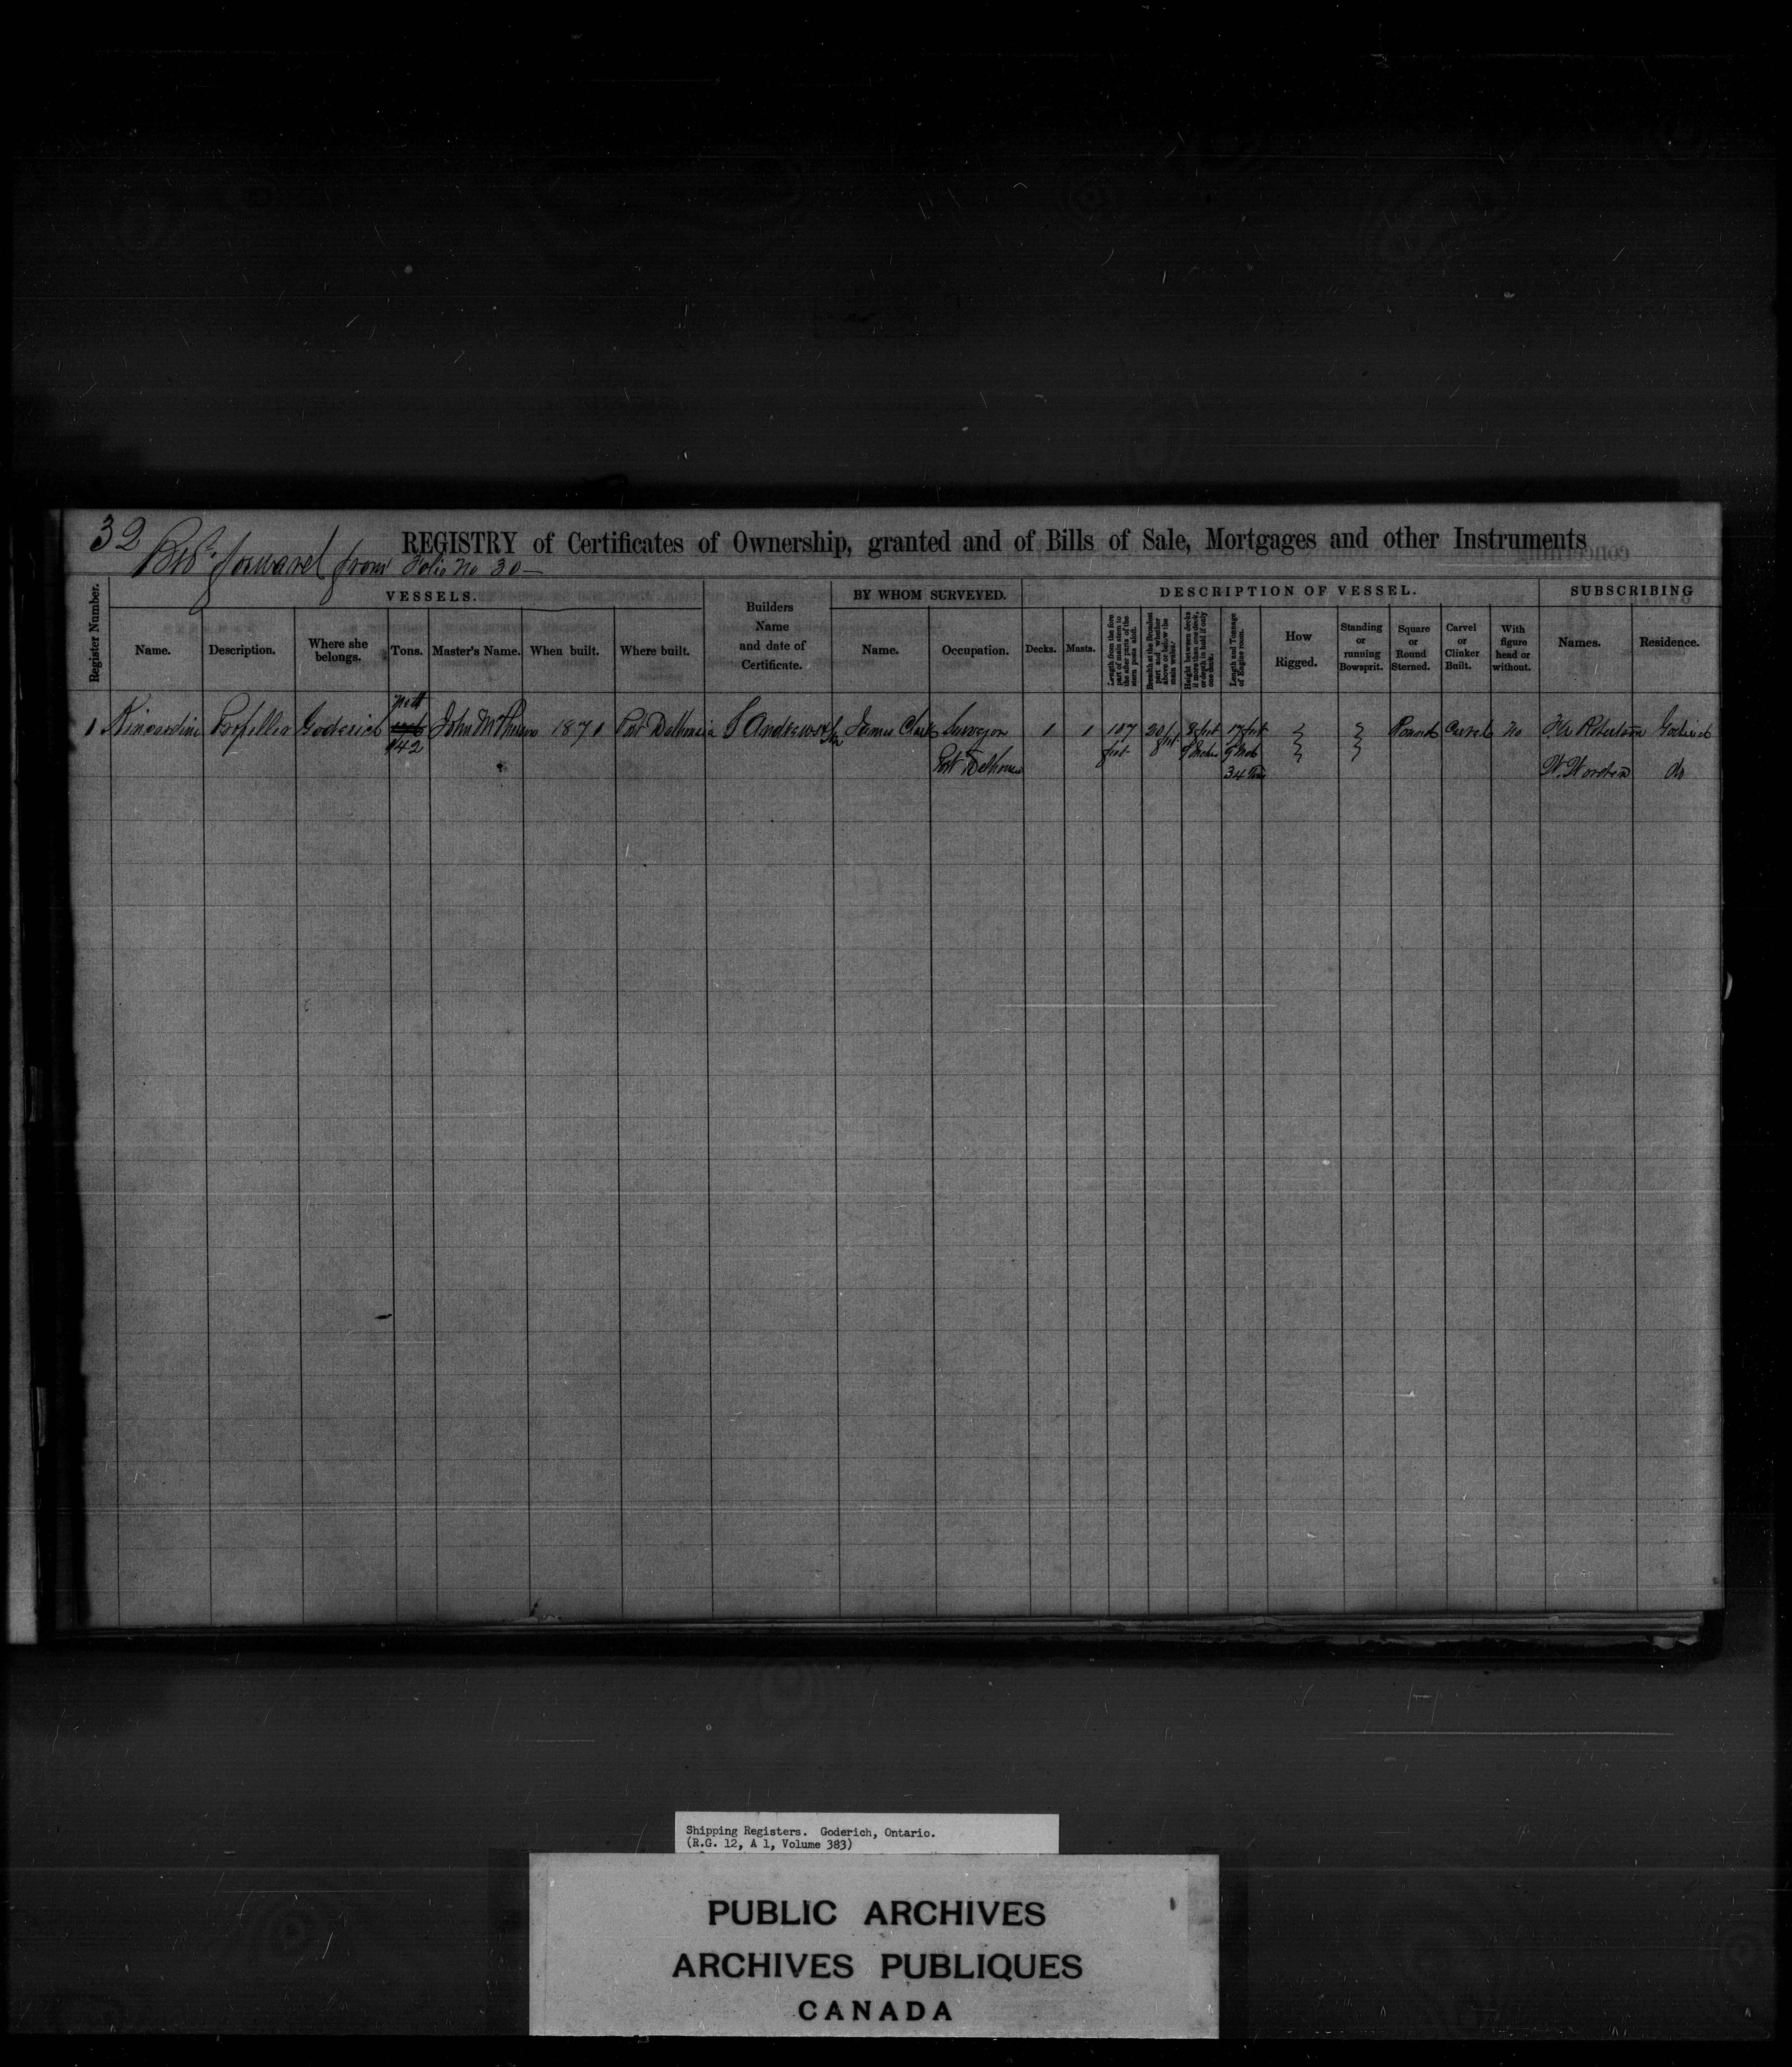 32
REGISTRY of Certificates of Ownership, granted and of Bills of Sale, Mortgages and other Instruments
forward from Folio No 30
Register Number.
VESSELS.
Name.
Description.
Where she belongs.
Tons.
Master's Name.
When built.
Where built.
Builders Name and date of Certificate.
BY WHOM SURVEYED.
Name.
Occupation.
DESCRIPTION OF VESSEL.
Decks.
Masts.
Length from the fore part of main stem to the after parts of the stern posts aloft.
Breadth at the Broadest part and whether above or below the main wales.
Height between decks if more than one deck, or depth in hold if only one deck.
Length and Tonnage of Engine room.
How Rigged.
Standing or running Bowsprit.
Square or Round Sterned.
Carvel or Clinker Built.
With figure head or without.
SUBSCRIBING
Names.
Residence.
1 Kincardine Propeller Goderich Nett 142 John 1871 Port Dalhousie S Andrews James Clark Surveyor 1 1 107 feet 20 8 feet 17 feet Round Carvel No Robertson Goderich
Port Dalhousie 34 W. do
Shipping Registers. Goderich, Ontario.
(R.G. 12, A 1, Volume 383)
PUBLIC ARCHIVES
ARCHIVES PUBLIQUES
CANADA